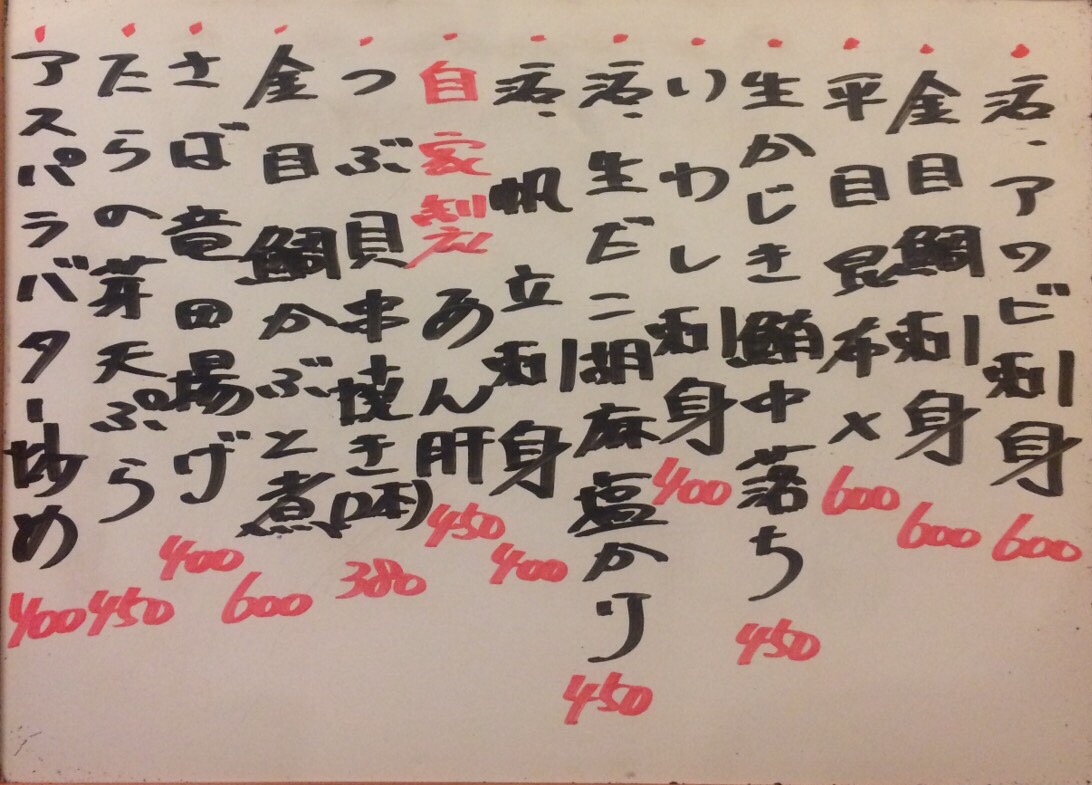 活・アワビ刺身 600
金目鯛刺身 600
平目昆布〆 600
生かじき鮪中落ち 450
いわし刺身 400
活・生だこ胡麻塩かけ 450
活・帆立刺身 400
自家製あん肝 450
つぶ貝串焼き(2本) 380
金目鯛かぶと煮 600
さば竜田揚げ 400
たらの芽天ぷら 450
アスパラバター炒め 400